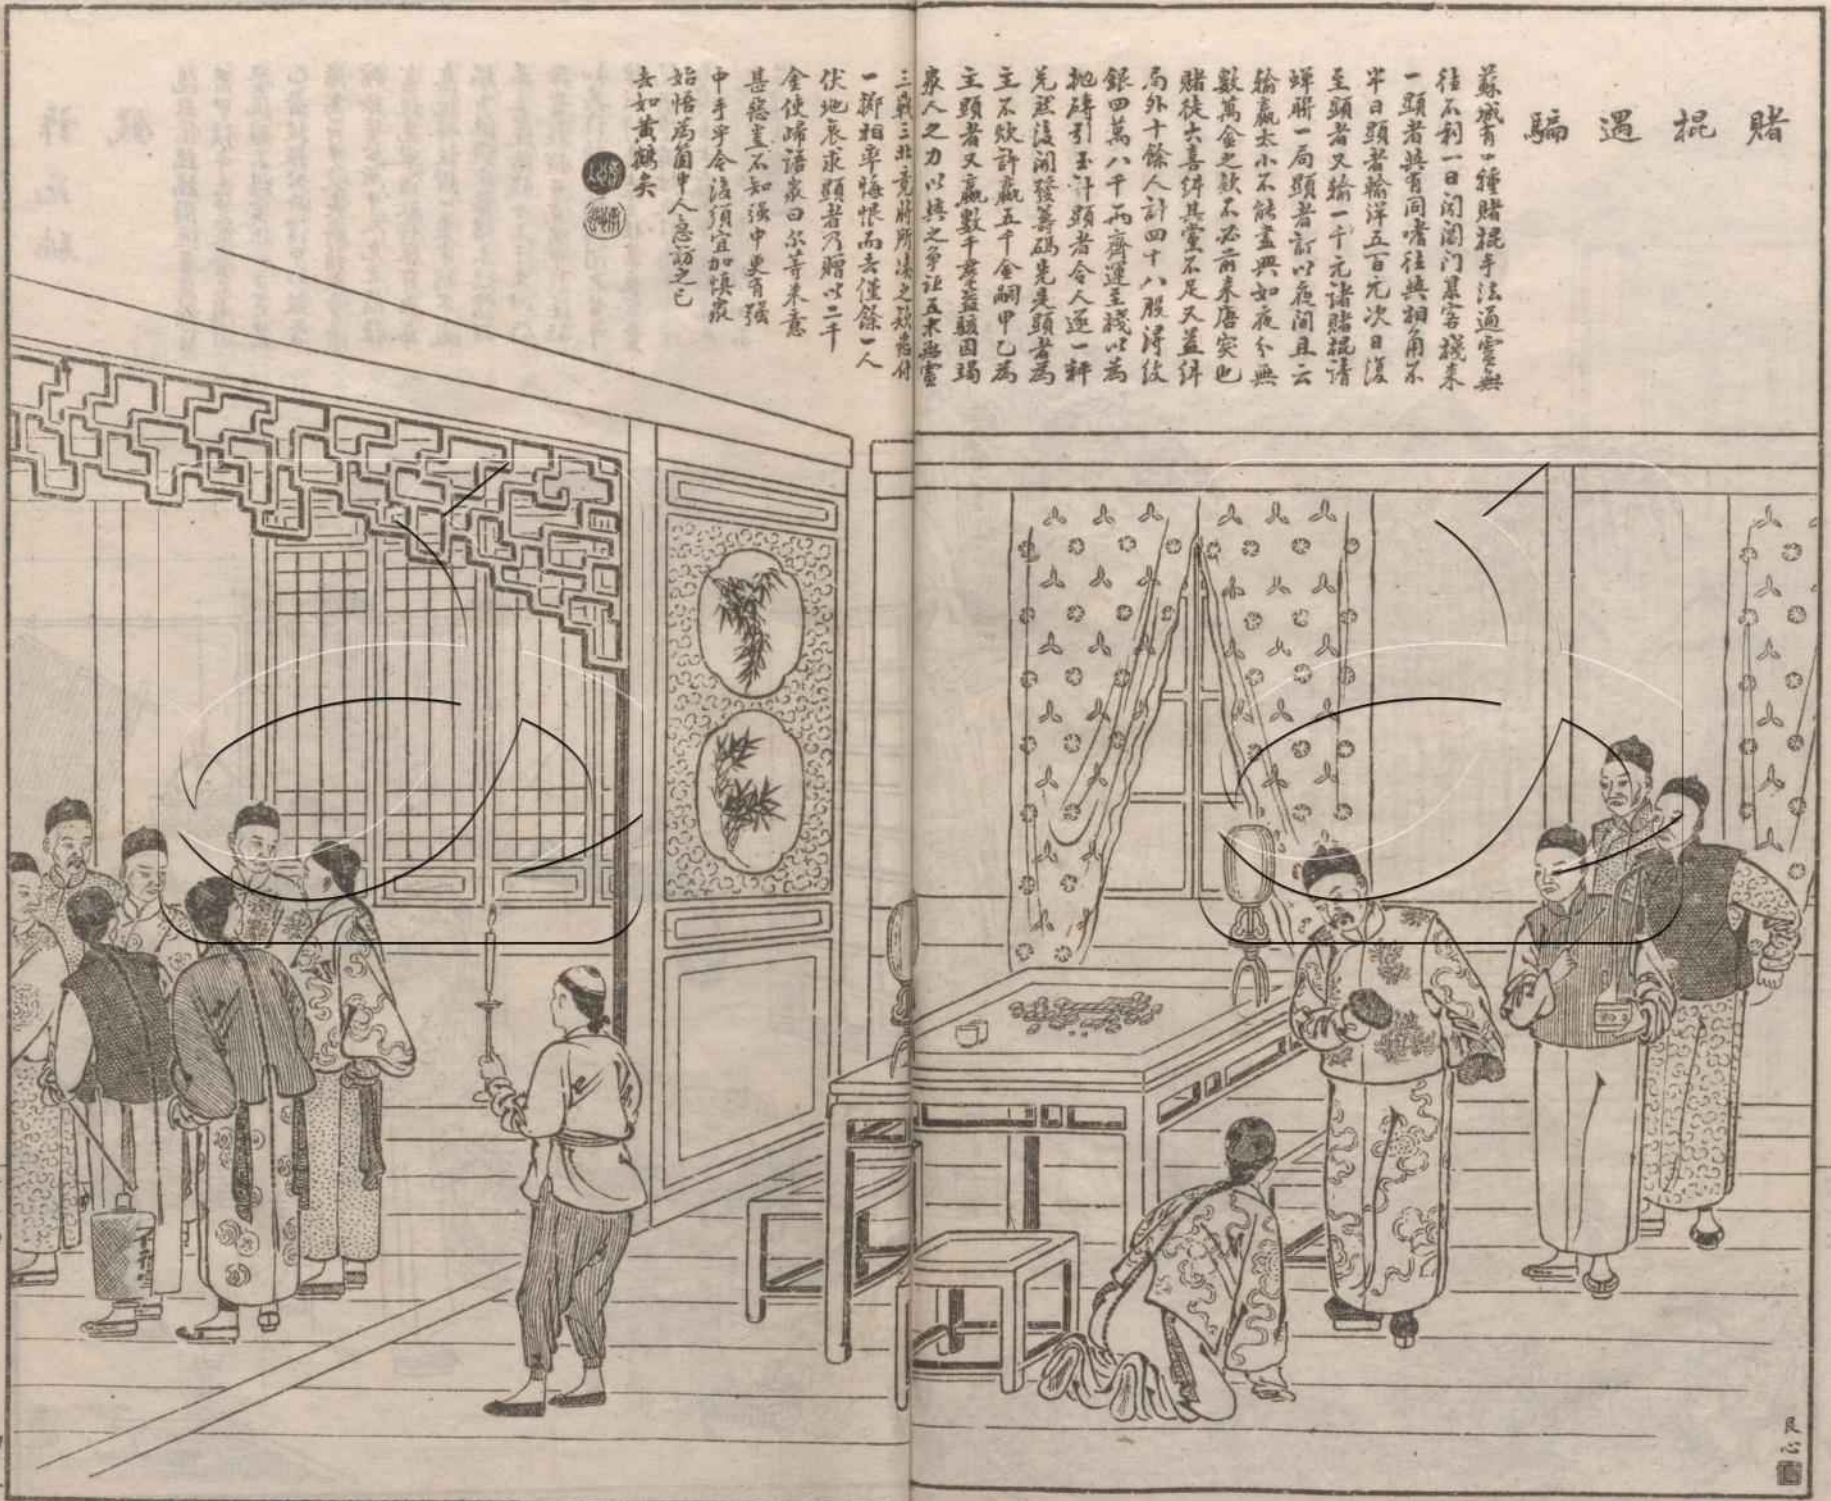 賭棍遇騙
蘇城有一種賭棍手法通靈無
往不利一日聞閶门某客棧來
一顯者與有同嗜往與相角不
半日顯者輸洋五百元次日復
至顯者又輸一千元諸賭棍請
蟬聯一局顯者訂以夜間且云
輸贏太小不能盡興如夜分無
數萬金之欵不必前來唐突也
賭徒大喜糾其黨不足又益糾
局外十餘人計四十八股得紋
銀四萬八千兩齊運至棧以為
拋磚引玉計顯者令人逐一秤
兌然後開發籌碼先是顯者為
主不欸許贏五千金嗣甲乙為
主顯者又贏數千羣益駭因竭
衆人之力以與之爭詎五木無靈
三戰三北竟將所湊之欵盡付
一擲相率悔恨而去僅餘一人
伏地哀求顯者乃贈以二千
金使歸語衆曰尔等來意
甚惡豈不知强中更有强
中手乎今後須宜加慎衆
始悟為箇中人急訪之已
去如黃鶴矣
艮心